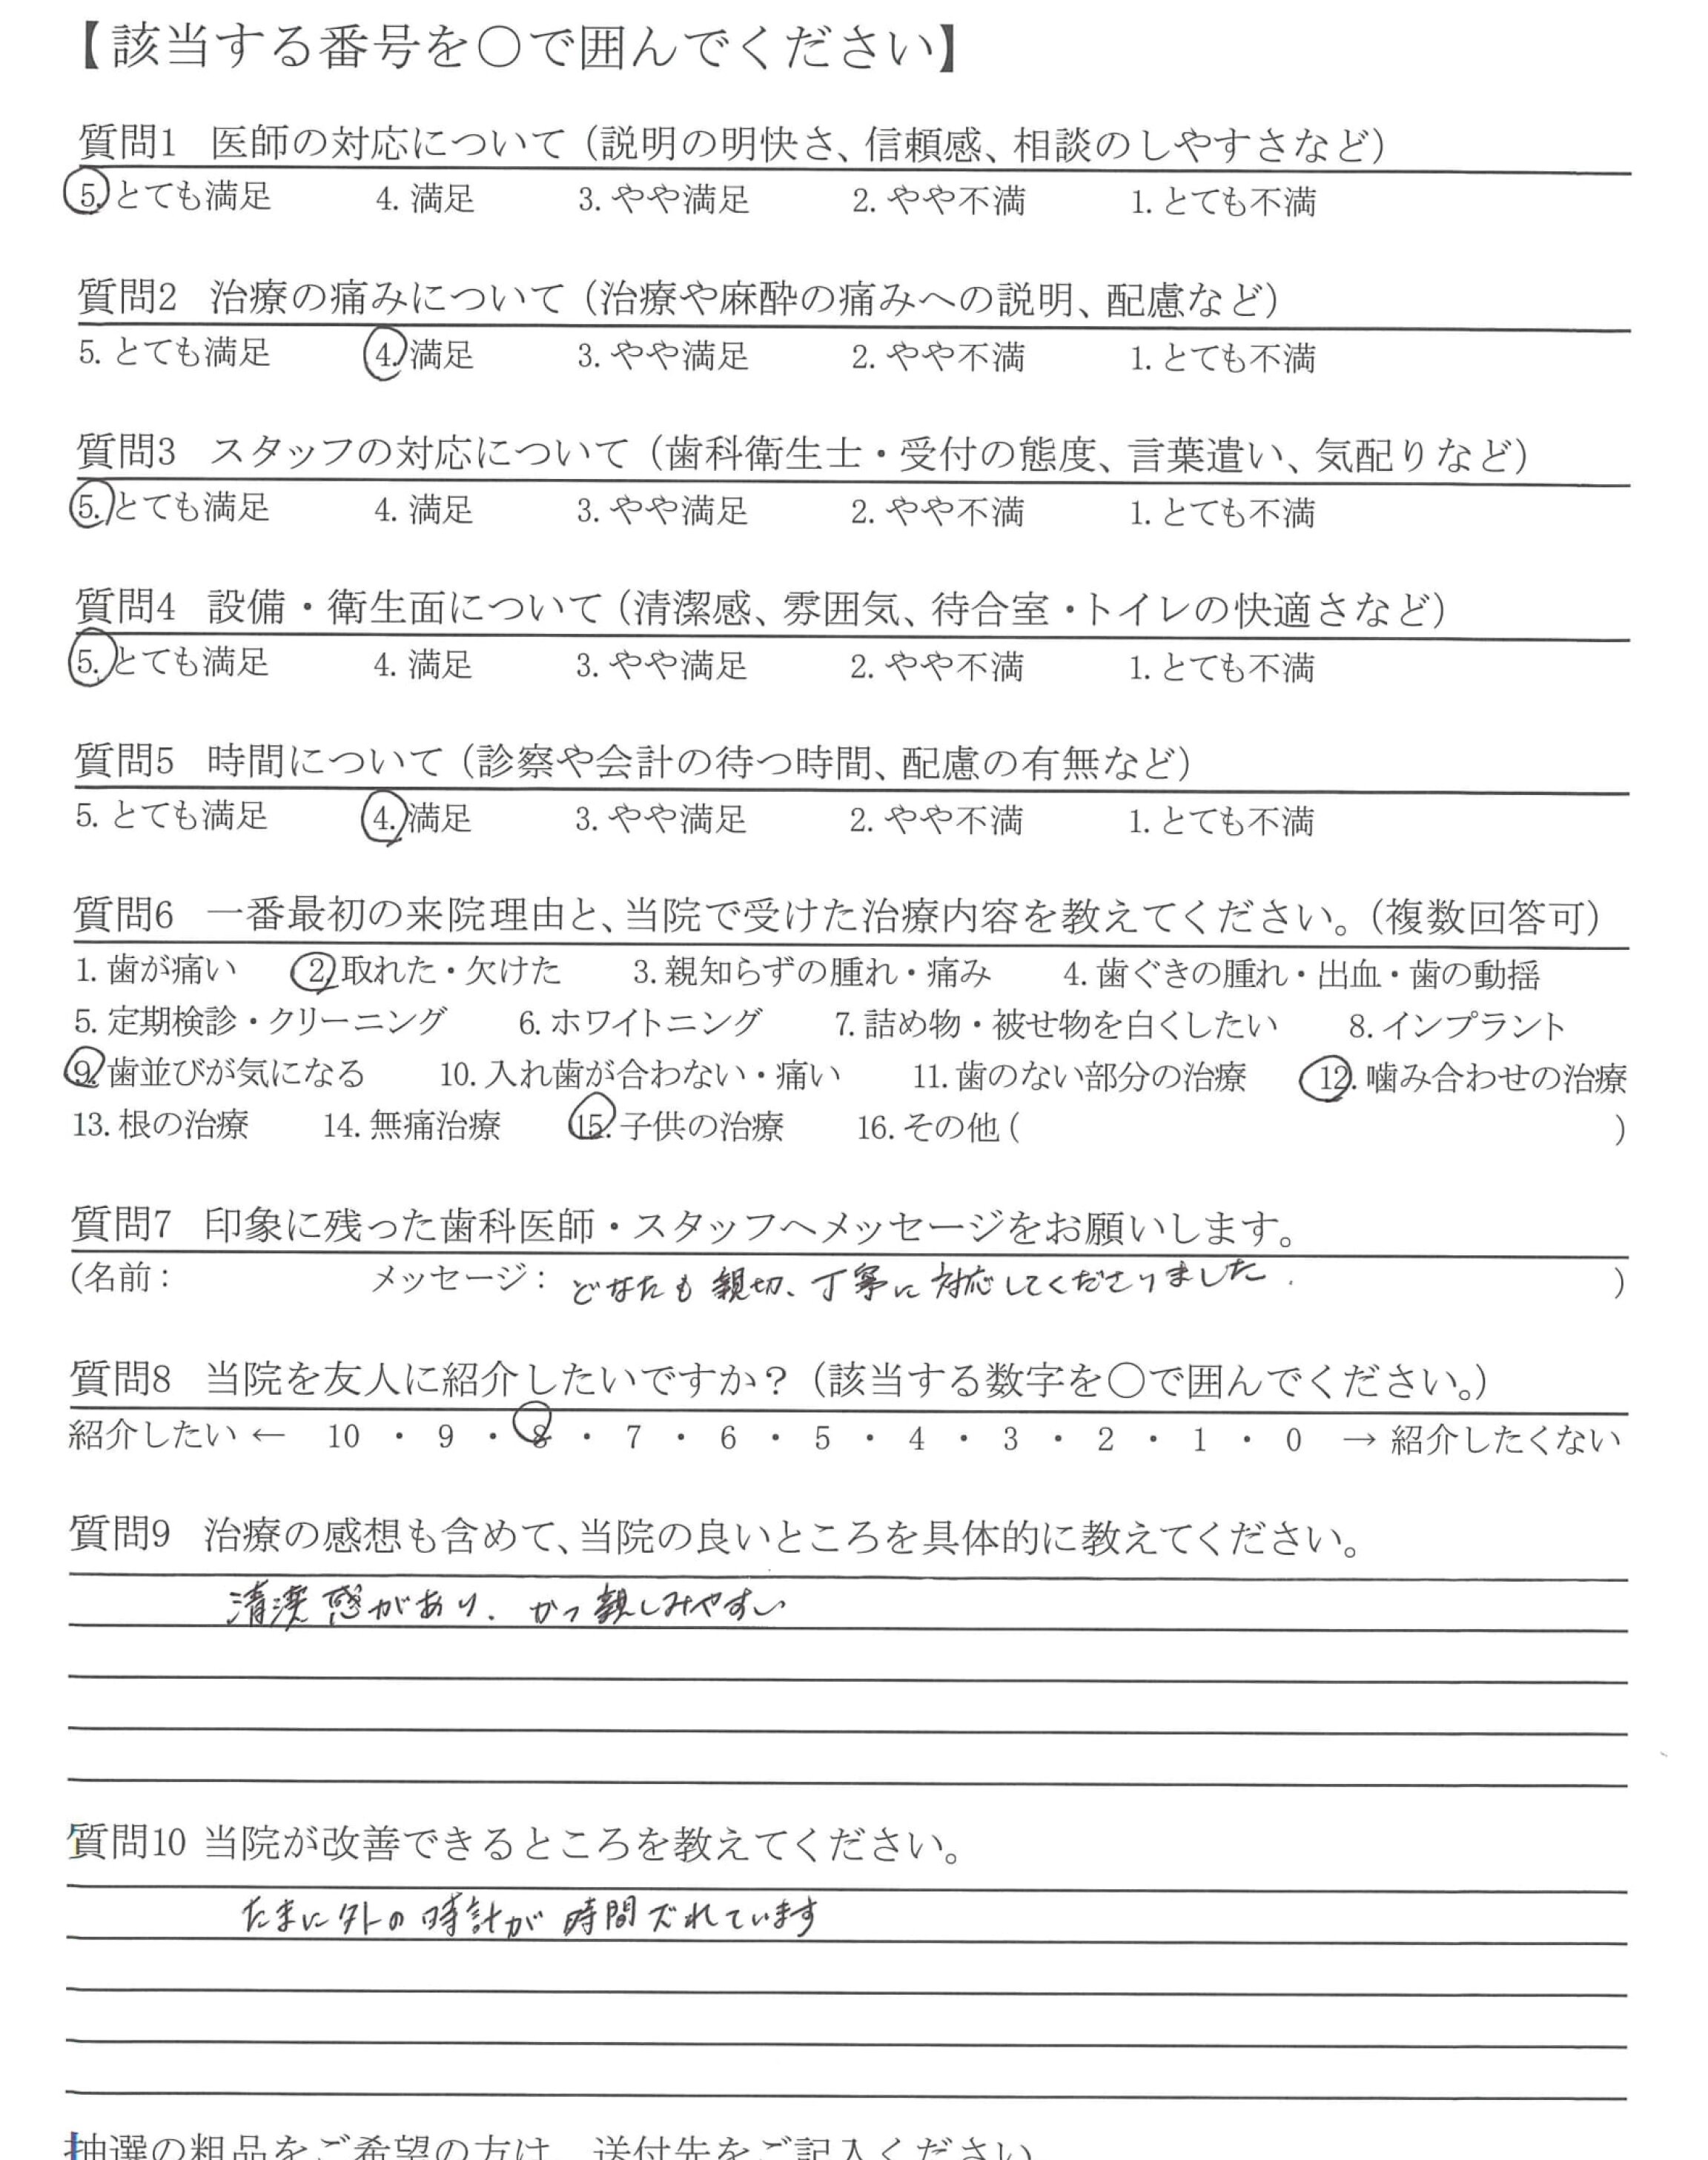 【該当する番号を〇で囲んでください】
質問1 医師の対応について（説明の明快さ、信頼感、相談のしやすさなど）
5. とても満足 4. 満足 3. やや満足 2. やや不満 1. とても不満
質問2 治療の痛みについて（治療や麻酔の痛みへの説明、配慮など）
5. とても満足 4. 満足 3. やや満足 2. やや不満 1. とても不満
質問3 スタッフの対応について（歯科衛生士・受付の態度、言葉遣い、気配りなど）
5. とても満足 4. 満足 3. やや満足 2. やや不満 1. とても不満
質問4 設備・衛生面について（清潔感、雰囲気、待合室・トイレの快適さなど）
5. とても満足 4. 満足 3. やや満足 2. やや不満 1. とても不満
質問5 時間について（診察や会計の待つ時間、配慮の有無など）
5. とても満足 4. 満足 3. やや満足 2. やや不満 1. とても不満
質問6 一番最初の来院理由と、当院で受けた治療内容を教えてください。（複数回答可）
1. 歯が痛い 2. 取れた・欠けた 3. 親知らずの腫れ・痛み 4. 歯ぐきの腫れ・出血・歯の動揺
5. 定期検診・クリーニング 6. ホワイトニング 7. 詰め物・被せ物を白くしたい 8. インプラント
9. 歯並びが気になる 10. 入れ歯が合わない・痛い 11. 歯のない部分の治療 12. 噛み合わせの治療
13. 根の治療 14. 無痛治療 15. 子供の治療 16. その他 ( )
質問7 印象に残った歯科医師・スタッフへメッセージをお願いします。
(名前： メッセージ： どなたも親切、丁寧に対応してくださりました. )
質問8 当院を友人に紹介したいですか？（該当する数字を〇で囲んでください。）
紹介したい ← 10 ・ 9 ・ 8 ・ 7 ・ 6 ・ 5 ・ 4 ・ 3 ・ 2 ・ 1 ・ 0 → 紹介したくない
質問9 治療の感想も含めて、当院の良いところを具体的に教えてください。
清潔感があり、かつ親しみやすい
質問10 当院が改善できるところを教えてください。
たまに外の時計が時間ズれています
抽選の粗品をご希望の方は、送付先をご記入ください